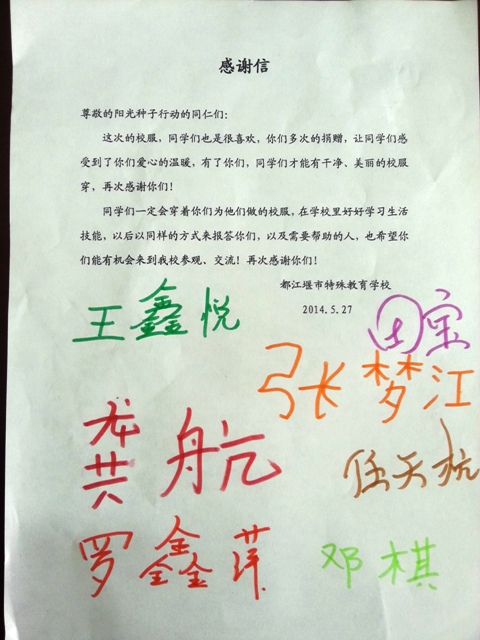 感谢信
尊敬的阳光种子行动的同仁们：
这次的校服，同学们也是很喜欢，你们多次的捐赠，让同学们感
受到了你们爱心的温暖，有了你们，同学们才能有干净、美丽的校服
穿，再次感谢你们！
同学们一定会穿着你们为他们做的校服，在学校里好好学习生活
技能，以后以同样的方式来报答你们，以及需要帮助的人，也希望你
们能有机会来到我校参观、交流！再次感谢你们！
都江堰市特殊教育学校
2014.5.27
王鑫悦
田宗
张梦江
龚航
任天杭
罗鑫萍
邓棋